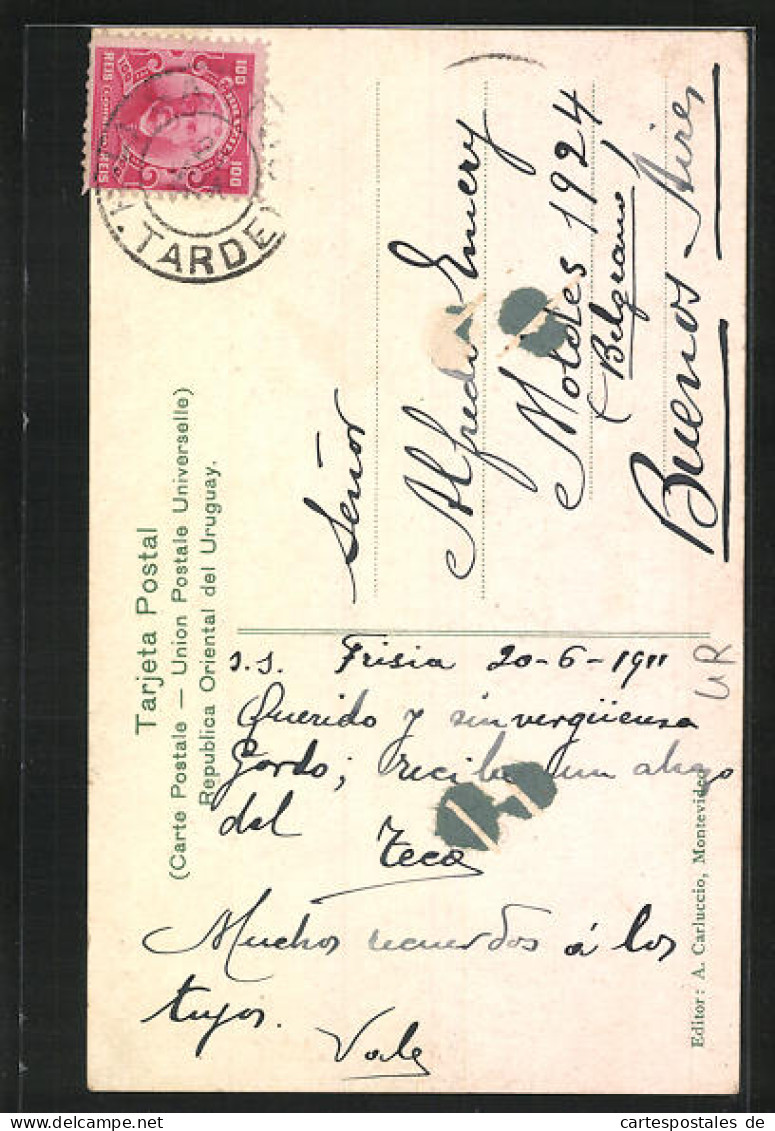 100
100
REIS (CORREIO) REIS
TARDE
Tarjeta Postal
(Carte Postale — Union Postale Universelle)
Republica Oriental del Uruguay.
Señor
Alfredo Emery
Moldes 1924
(Belgrano)
Buenos Aires
s.s. Frisia 20-6-1911
Querido y sinvergüensa
Gordo; recibe un abrazo
del
Teco
Muchos recuerdos á los
tuyos.
Vale
UR
Editor: A. Carluccio, Montevideo
cartespostales de